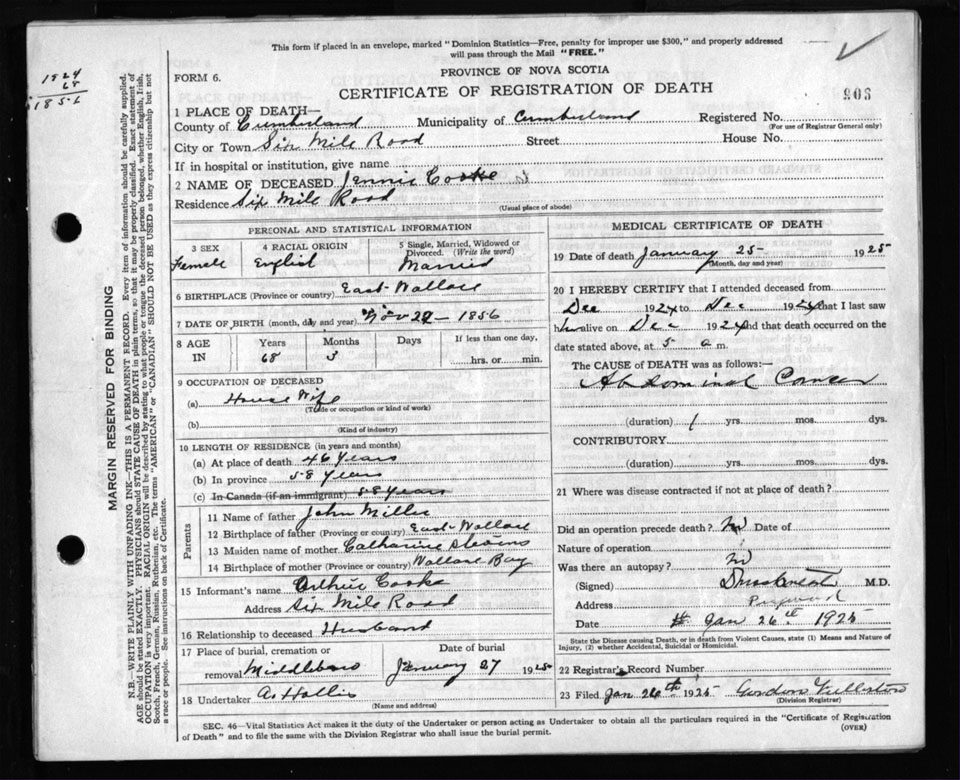 This form if placed in an envelope, marked "Dominion Statistics—Free, penalty for improper use $300," and properly addressed
will pass through the Mail "FREE."
1824
68
1856
FORM 6.
PROVINCE OF NOVA SCOTIA
CERTIFICATE OF REGISTRATION OF DEATH
903
1 PLACE OF DEATH—
County of Cumberland Municipality of Cumberland Registered No.
(For use of Registrar General only)
City or Town Six Mile Road Street House No.
If in hospital or institution, give name
2 NAME OF DECEASED Jennie Cooke
Residence Six Mile Road
(Usual place of abode)
PERSONAL AND STATISTICAL INFORMATION
3 SEX 4 RACIAL ORIGIN 5 Single, Married, Widowed or Divorced. (Write the word)
Female English Married
6 BIRTHPLACE (Province or country) East Wallace
7 DATE OF BIRTH (month, day and year) Nov 29 - 1856
8 AGE IN Years Months Days If less than one day,
68 3 hrs. or min.
9 OCCUPATION OF DECEASED
(a) House Wife
(Trade or occupation or kind of work)
(b)
(Kind of industry)
10 LENGTH OF RESIDENCE (in years and months)
(a) At place of death 46 Years
(b) In province 58 Years
(c) In Canada (if an immigrant) 58 Years
Parents
11 Name of father John Miller
12 Birthplace of father (Province or country) East Wallace
13 Maiden name of mother Catharine Stevens
14 Birthplace of mother (Province or country) Wallace Bay
15 Informant's name Arthur Cooke
Address Six Mile Road
16 Relationship to deceased Husband
17 Place of burial, cremation or removal Date of burial
Middleboro January 27 1925
18 Undertaker A. Hollis
(Name and address)
MEDICAL CERTIFICATE OF DEATH
19 Date of death January 25 1925
(Month, day and year)
20 I HEREBY CERTIFY that I attended deceased from
Dec 1924 to Dec 1924 that I last saw
her alive on Dec 1924 and that death occurred on the
date stated above, at 5 a m.
The CAUSE OF DEATH was as follows:—
Abdominal Cancer
(duration) 1 yrs. mos. dys.
CONTRIBUTORY
(duration) yrs. mos. dys.
21 Where was disease contracted if not at place of death?
Did an operation precede death? No Date of
Nature of operation
Was there an autopsy? No
(Signed) M.D.
Address Pugwash
Date Jan 26th 1925
State the Disease causing Death, or in death from Violent Causes, state (1) Means and Nature of
Injury, (2) whether Accidental, Suicidal or Homicidal.
22 Registrar's Record Number
23 Filed Jan 26th 1925 Gordon Fullerton
(Division Registrar)
SEC. 46—Vital Statistics Act makes it the duty of the Undertaker or person acting as Undertaker to obtain all the particulars required in the "Certificate of Registration
of Death" and to file the same with the Division Registrar who shall issue the burial permit.
(OVER)
MARGIN RESERVED FOR BINDING
N.B.—WRITE PLAINLY WITH UNFADING INK—THIS IS A PERMANENT RECORD. Every item of information should be carefully supplied.
AGE should be stated EXACTLY. PHYSICIANS should STATE CAUSE OF DEATH in plain terms, so that it may be properly classified. Exact statement of
OCCUPATION is very important. RACIAL ORIGIN will be described by stating to what people or tongue the deceased person belonged, whether English, Irish,
Scotch, French, German, Russian, Ruthenian, etc. The terms "AMERICAN" or "CANADIAN" SHOULD NOT BE USED as they express citizenship but not
a race or people. See instructions on back of Certificate.